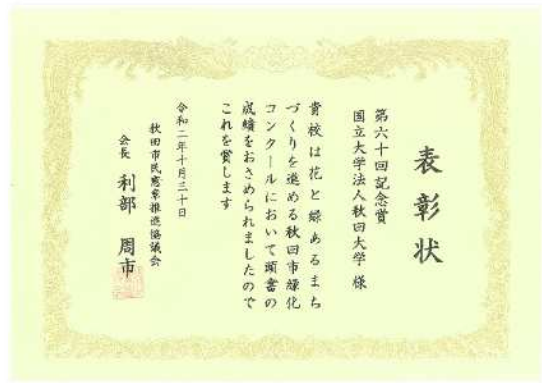 表彰状
第六十回記念賞
国立大学法人秋田大学 様
貴校は花と緑あるまち
づくりを進める秋田市緑化
コンクールにおいて頭書の
成績をおさめられましたので
これを賞します
令和二年十月三十日
秋田市民憲章推進協議会
会長 利部 周市